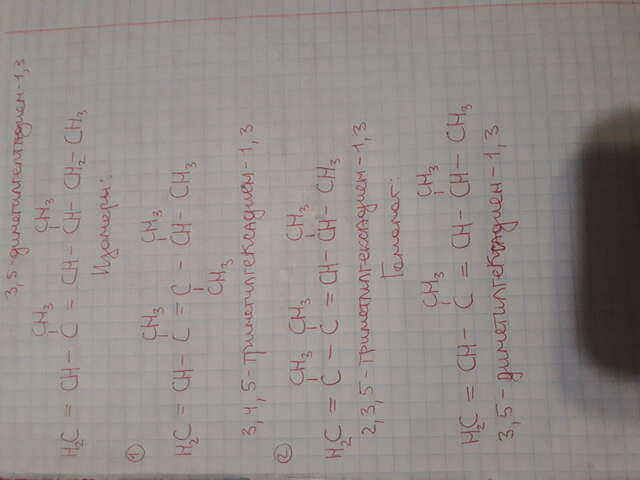 3,5-диметилгептадиен-1,3
CH₃ CH₃
H₂C = CH - C = CH - CH - CH₂ - CH₃
Изомеры:
1
CH₃ CH₃
H₂C = CH - C = C - CH - CH₃
CH₃
3,4,5-триметилгексадиен-1,3
2
CH₃ CH₃ CH₃
H₂C = C - C = CH - CH - CH₃
2,3,5-триметилгексадиен-1,3
Гомолог:
CH₃ CH₃
H₂C = CH - C = CH - CH - CH₃
3,5-диметилгексадиен-1,3